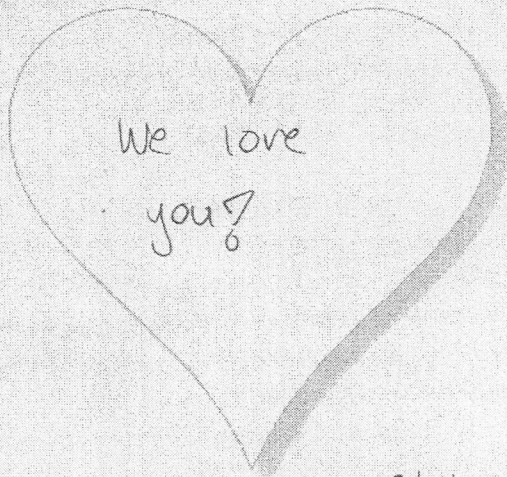 We love
you!